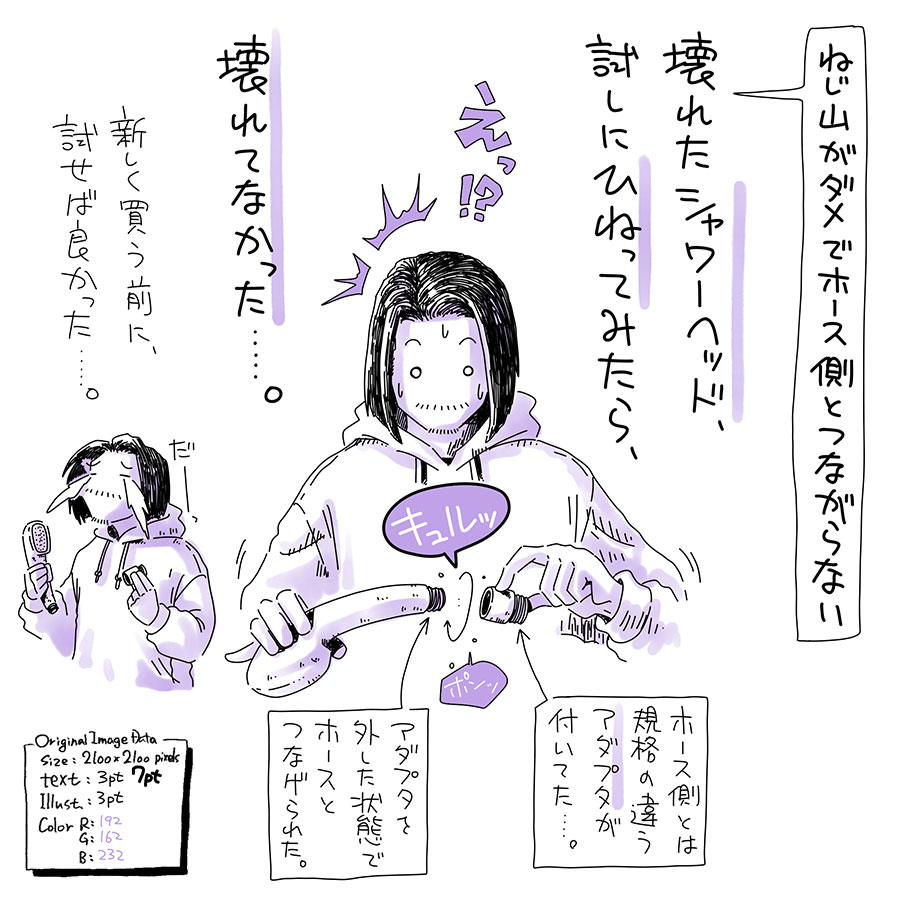 ねじ山がダメでホース側とつながらない
壊れたシャワーヘッド、
試しにひねってみたら、
えっ!?
壊れてなかった……。
新しく買う前に、
試せば良かった……。
だー
キュルッ
ポンッ
ホース側とは
規格の違う
アダプタが
付いてた……。
アダプタを
外した状態で
ホースと
つなげられた。
Original Image Data
size : 2100×2100 pixels
text : 3pt 7pt
Illust. : 3pt
Color R: 192
G: 162
B: 232